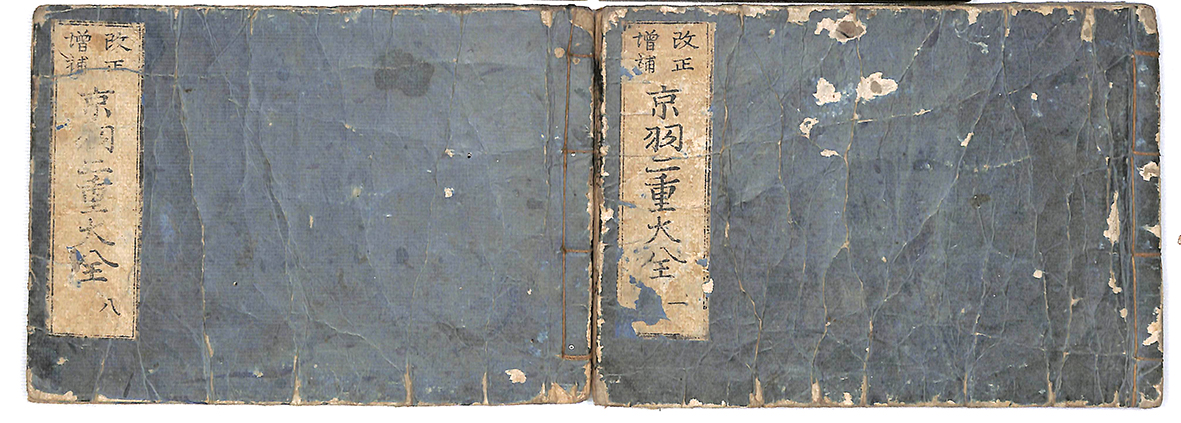 改正
増補
京羽二重大全
一
改正
増補
京羽二重大全
八